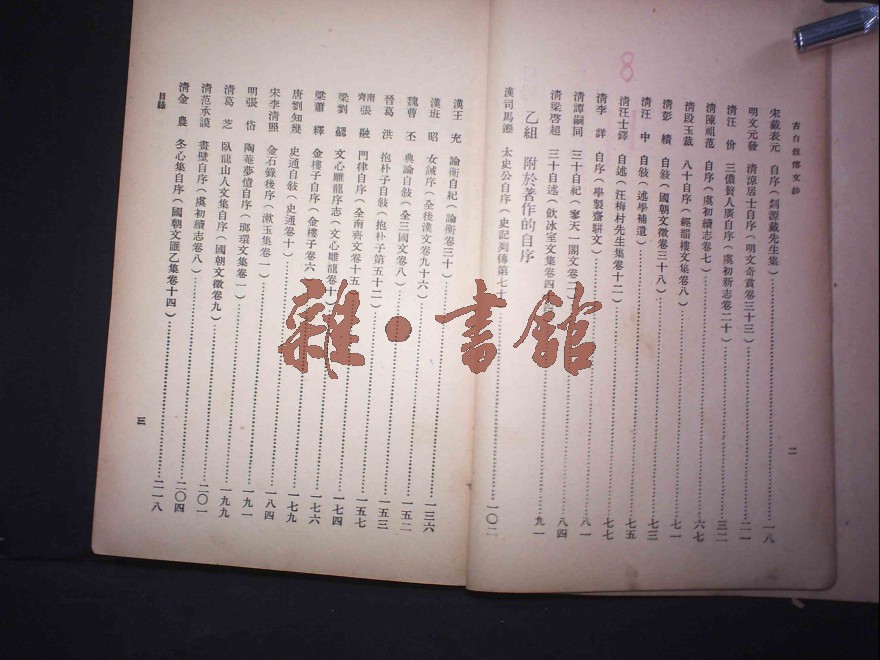 8
宋戴表元　自序（剡源戴先生集）……一八
明文元發　清涼居士自序（明文奇賞卷三十三）……二一
清汪　份　三儂贅人廣自序（虞初新志卷二十）……三二
清陳祖范　自序（虞初續志卷七）……六七
清段玉裁　八十自序（經韻樓文集卷八）……七一
清彭　績　自敍（國朝文徵卷三十八）
清汪　中　自敍（述學補遺）……七三
清汪士鐸　自述（汪梅村先生集卷十二）……七五
清李　詳　自序（學製齋駢文）……七七
清譚嗣同　三十自紀（寥天一閣文卷二）……八一
清梁啓超　三十自述（飲冰室文集卷四……八四
乙組　附於著作的自序
漢司馬遷　太史公自序（史記列傳第七十……一〇二
九一
二
漢王　充　論衡自紀（論衡卷三十）……一三六
漢班　昭　女誡序（全後漢文卷九十六）
魏曹　丕　典論自敍（全三國文卷八）……一五二
晉葛　洪　抱朴子自敍（抱朴子第五十二）……一五三
南齊張　融　門律自序（全南齊文卷十五……一五七
梁劉　勰　文心雕龍序志（文心雕龍卷十……一七四
梁蕭　繹　金樓子自序（金樓子卷六……一七六
唐劉知幾　史通自敍（史通卷十）……一七九
宋李清照　金石錄後序（漱玉集卷一）……一八四
明張　岱　陶菴夢憶自序（瑯環文集卷一）……一九一
清葛　芝　臥龍山人文集自序（國朝文徵卷九）……一九九
清范承謨　畫壁自序（虞初續志卷八）……二〇一
清金　農　冬心集自序（國朝文匯乙集卷十四）……二〇四
二一八
目錄
三
雜・書館